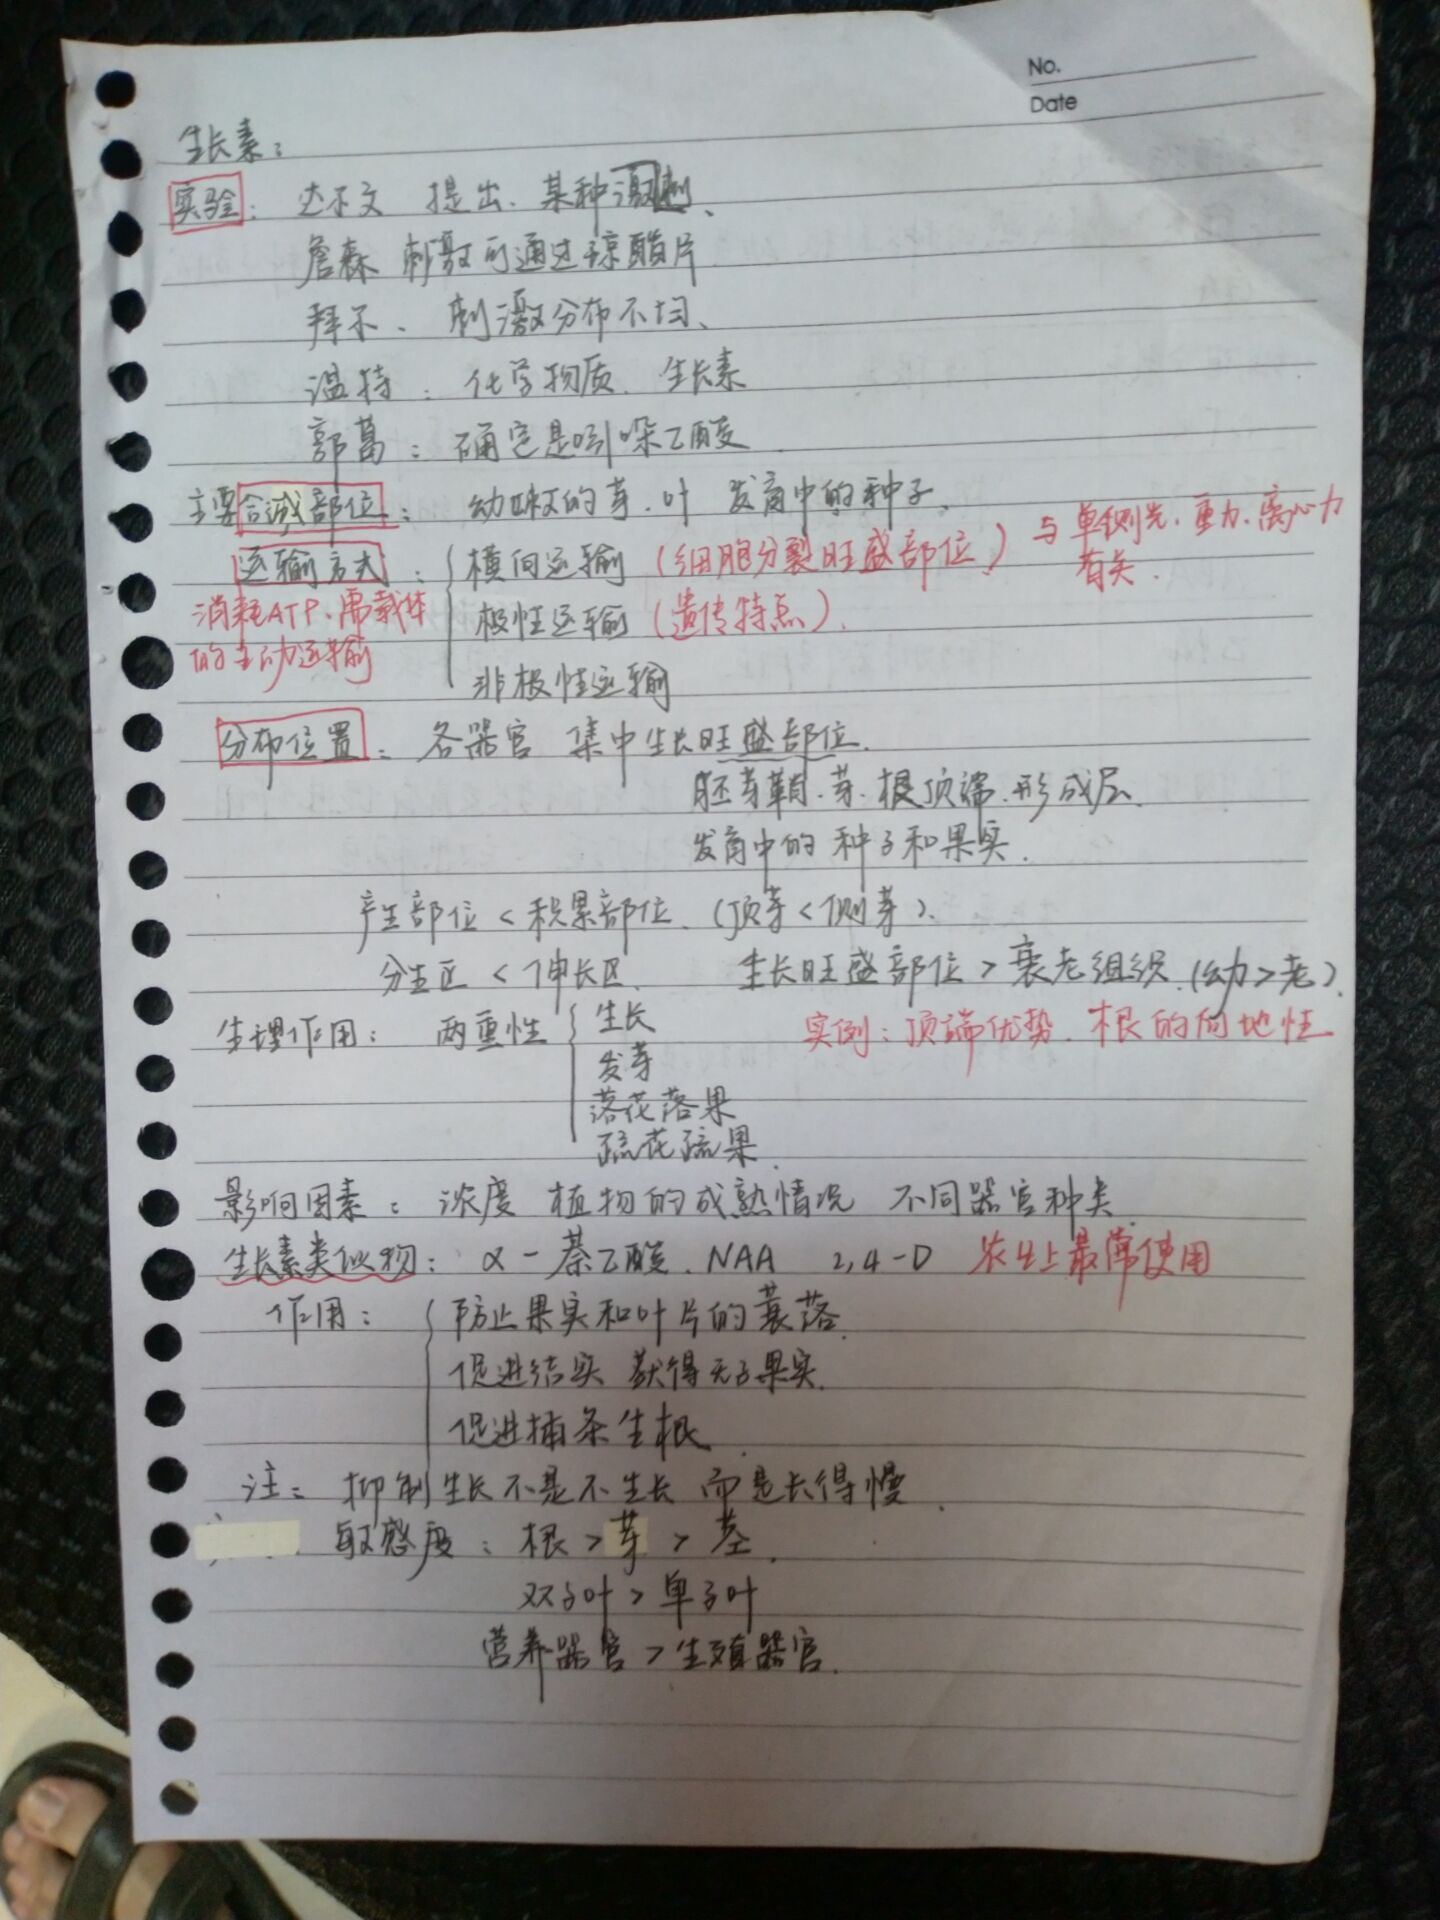 No.
Date
生长素：
实验：达尔文 提出、某种刺激、
詹森 刺激可通过琼脂片
拜尔、刺激分布不均、
温特：化学物质、生长素
郭葛：确定是吲哚乙酸
主要合成部位：幼嫩的芽、叶 发育中的种子、
运输方式：横向运输（细胞分裂旺盛部位）与单侧光、重力、离心力
有关.
消耗ATP、需载体 极性运输（遗传特点）.
的主动运输
非极性运输
分布位置：各器官 集中生长旺盛部位.
胚芽鞘、芽、根顶端、形成层.
发育中的种子和果实.
产生部位<积累部位、（顶芽<侧芽）.
分生区<伸长区. 生长旺盛部位>衰老组织.(幼>老).
生理作用：两重性 生长 实例：顶端优势、根的向地性
发芽
落花落果
疏花疏果.
影响因素：浓度 植物的成熟情况 不同器官种类
生长素类似物：α-萘乙酸、NAA 2,4-D 农业上最常使用
作用：防止果实和叶片的衰落.
促进结实 获得无子果实.
促进插条生根.
注：抑制生长不是不生长 而是长得慢.
敏感度：根>芽>茎.
双子叶>单子叶
营养器官>生殖器官.